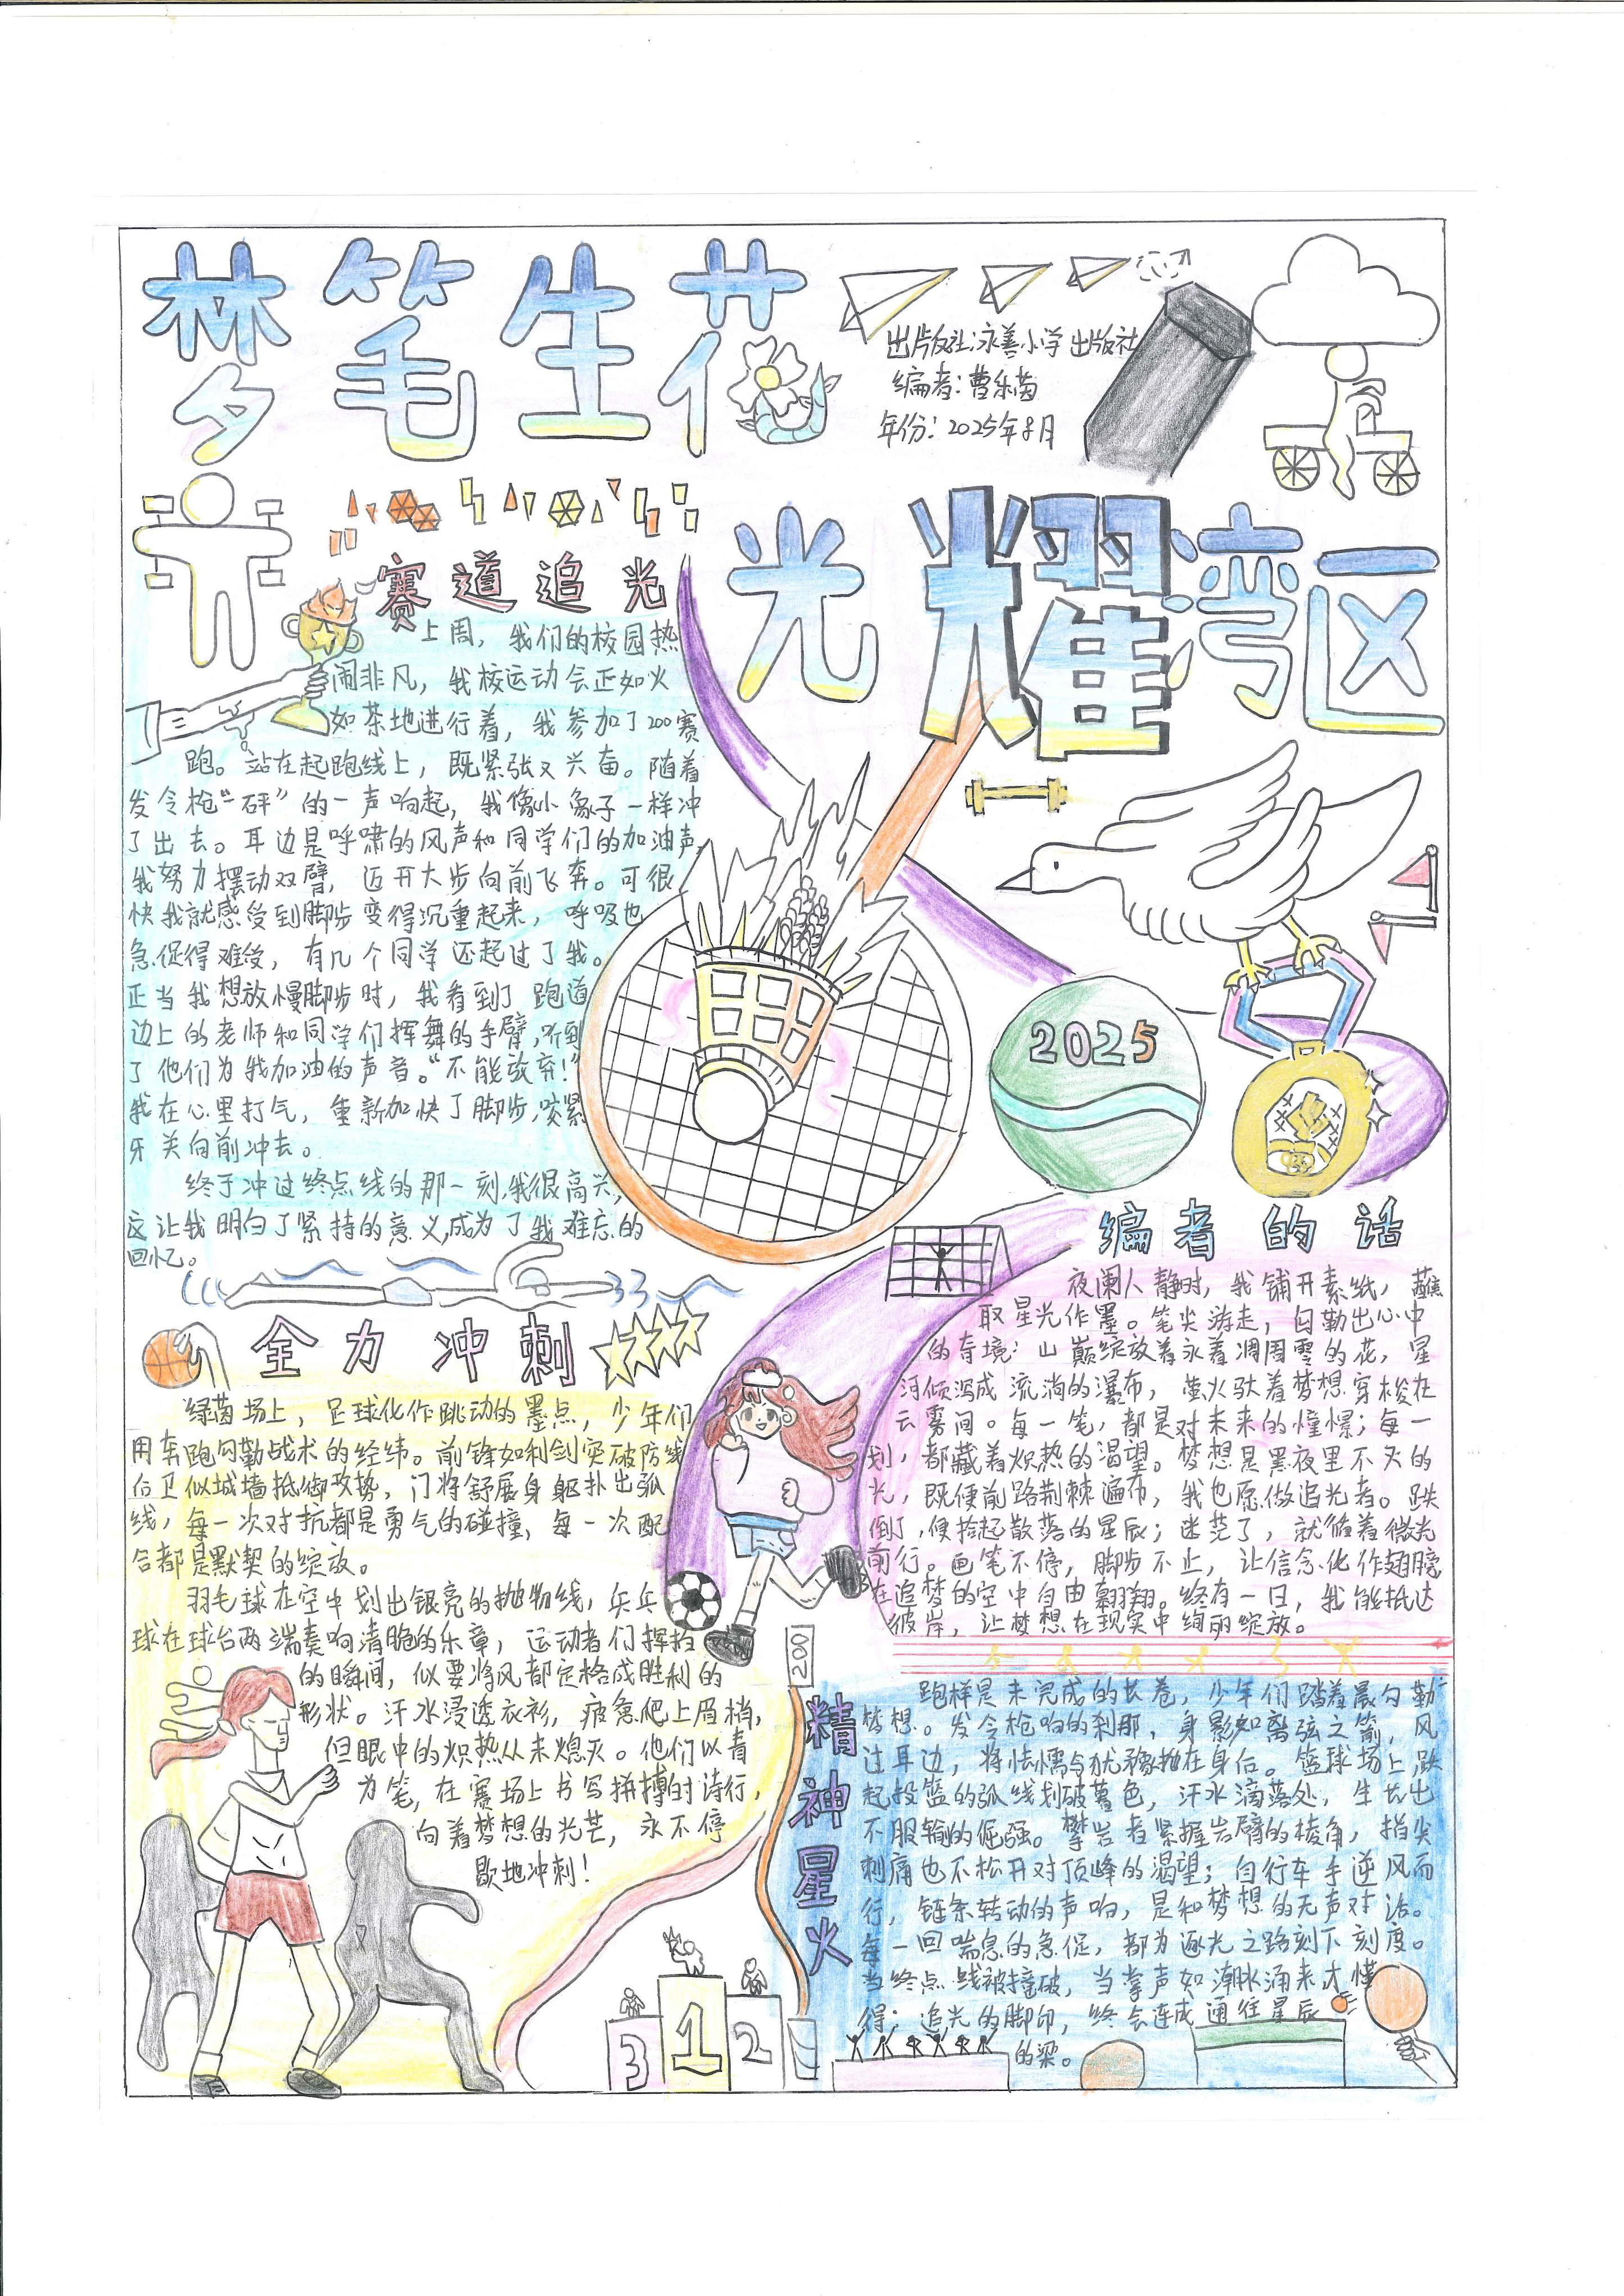 梦笔生花
出版社:永善小学出版社
编者:曹乐茵
年份:2025年8月
光耀湾区
赛道追光
上周，我们的校园热
闹非凡，我校运动会正如火
如茶地进行着，我参加了200赛
跑。站在起跑线上，既紧张又兴奋。随着
发令枪“砰”的一声响起，我像小象子一样冲
了出去。耳边是呼啸的风声和同学们的加油声，
我努力摆动双臂，迈开大步向前飞奔。可很
快我就感受到脚步变得沉重起来，呼吸也
急促得难受，有几个同学还起过了我。
正当我想放慢脚步时，我看到了跑道
边上的老师和同学们挥舞的手臂，听到
了他们为我加油的声音。“不能放弃！”
我在心里打气，重新加快了脚步，咬紧
牙关向前冲去。
终于冲过终点线的那一刻，我很高兴，
这让我明白了紧持的意义，成为了我难忘的
回忆。
2025
编者的话
夜阑人静时，我铺开素纸，蘸
取星光作墨。笔尖游走，勾勒出心中
的奇境：山巅绽放着永着凋周零的花，星
河倾泻成流淌的瀑布，萤火驮着梦想穿梭在
云雾间。每一笔，都是对未来的憧憬；每一
划，都藏着炽热的渴望。梦想是黑夜里不灭的
光，既便前路荆棘遍布，我也愿做追光者。跌
倒了，便拾起散落的星辰；迷茫了，就循着微光
前行。画笔不停，脚步不止，让信念化作翅膀
在追梦的空中自由翱翔。终有一日，我能抵达
彼岸，让梦想在现实中绚丽绽放。
全力冲刺
绿茵场上，足球化作跳动的墨点，少年们
用奔跑勾勒战术的经纬。前锋如利剑突破防线
后卫似城墙抵御攻势，门将舒展身躯扑出弧
线，每一次对抗都是勇气的碰撞，每一次配
合都是默契的绽放。
羽毛球在空中划出银亮的抛物线，乒乓
球在球台两端奏响清脆的乐章，运动者们挥拍
的瞬间，似要将风都定格成胜利的
形状。汗水浸透衣衫，疲惫爬上眉梢，
但眼中的炽热从未熄灭。他们以青
为笔，在赛场上书写拼搏的诗行，
向着梦想的光芒，永不停
歇地冲刺！
200
精神星火
跑样是未完成的长卷，少年们踏着晨勾勒
梦想。发令枪响的刹那，身影如离弦之箭，风
过耳边，将怯懦与犹豫抛在身后。篮球场上，跃
起投篮的弧线划破暮色，汗水滴落处，生长出
不服输的倔强。攀岩者紧握岩臂的棱角，指尖
刺痛也不松开对顶峰的渴望；自行车手逆风而
行，链条转动的声响，是和梦想的无声对话。
每一回喘息的急促，都为逐光之路刻下刻度。
当终点线被撞破，当掌声如潮水涌来才懂
得：追光的脚印，终会连成通往星辰
的梁。
3 1 2